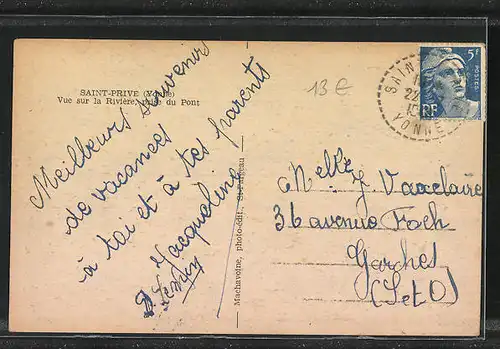 SAINT-PRIVE (Yonne)
Vue sur la Rivière, prise du Pont
13 €
5F
POSTES
RF
SAINT
22
YONNE
Meilleurs souvenirs
de vacances
à toi et à tes parents
Jacqueline
Machavoine, photo-édit., St-Fargeau
Melle J. Vauclaire
36 avenue Foch
Garches
(S et O)